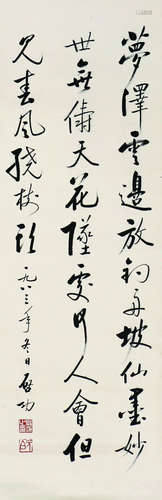 夢澤雲邊放釣舟坡仙墨妙
世無儔天花墜處何人會但
見春風繞樹頭
一九八三年冬日啟功